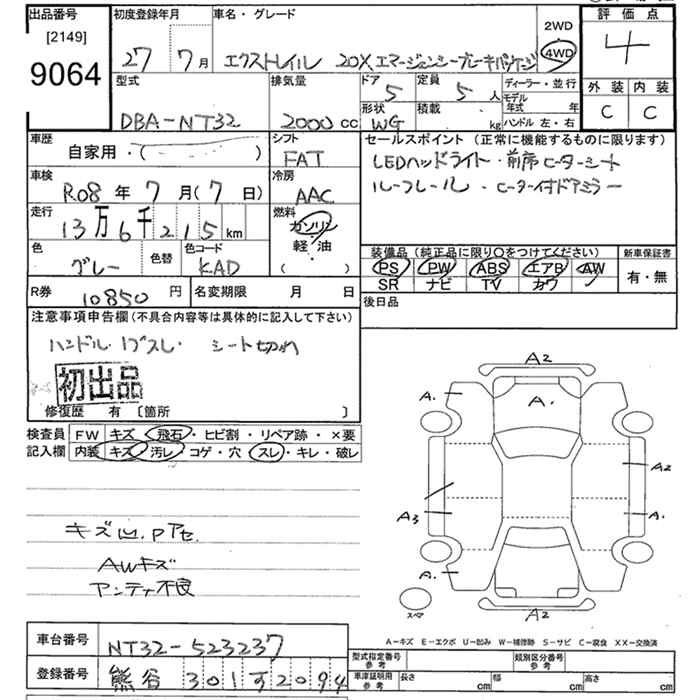 出品番号 初度登録年月 車名・グレード 2WD 評価点
[2149] 27 7月 エクストレイル 20X エマージェンシーブレーキパッケージ 4WD 4
9064 型式 排気量 ドア 定員 ディーラー・並行 外装 内装
5 5人 モデル年式 年
DBA-NT32 2000cc 形状 積載 ハンドル 左・右 C C
WG kg
車歴 シフト セールスポイント (正常に機能するものに限ります)
自家用・( ) FAT LEDヘッドライト・前席ヒーターシート
車検 冷房 ルーフレール・ヒーター付ドアミラー
R.08年 7月(7日) AAC
走行 燃料
13万6千215km ガソリン
軽油
色 色替 色コード ( ) 装備品 (純正品に限り○をつけてください) 新車保証書
グレー KAD PS PW ABS エアB AW 有・無
SR ナビ TV カワ
R券 10850円 名変期限 月 日 後日品
注意事項申告欄 (不具合内容等は具体的に記入して下さい)
ハンドル・リブスレ・ シート切れ
初出品
修復歴 有 〔箇所 〕
検査員 FW キズ・飛石・ヒビ割・リペア跡・×要
記入欄 内装 キズ・汚レ・コゲ・穴・スレ・キレ・破レ
A2
A. A.
A2
A3 A.
A.
スペア A2
キズ凹.Pアセ
AWキズ
アンテナ不良
A-キズ E-エクボ U-凹み W-補修跡 S-サビ C-腐食 XX-交換済
車台番号 NT32-523237 型式指定番号 参考 類別区分番号 参考
登録番号 熊谷 301 す 2094 車庫証明用 参考 長さ cm 幅 cm 高さ cm